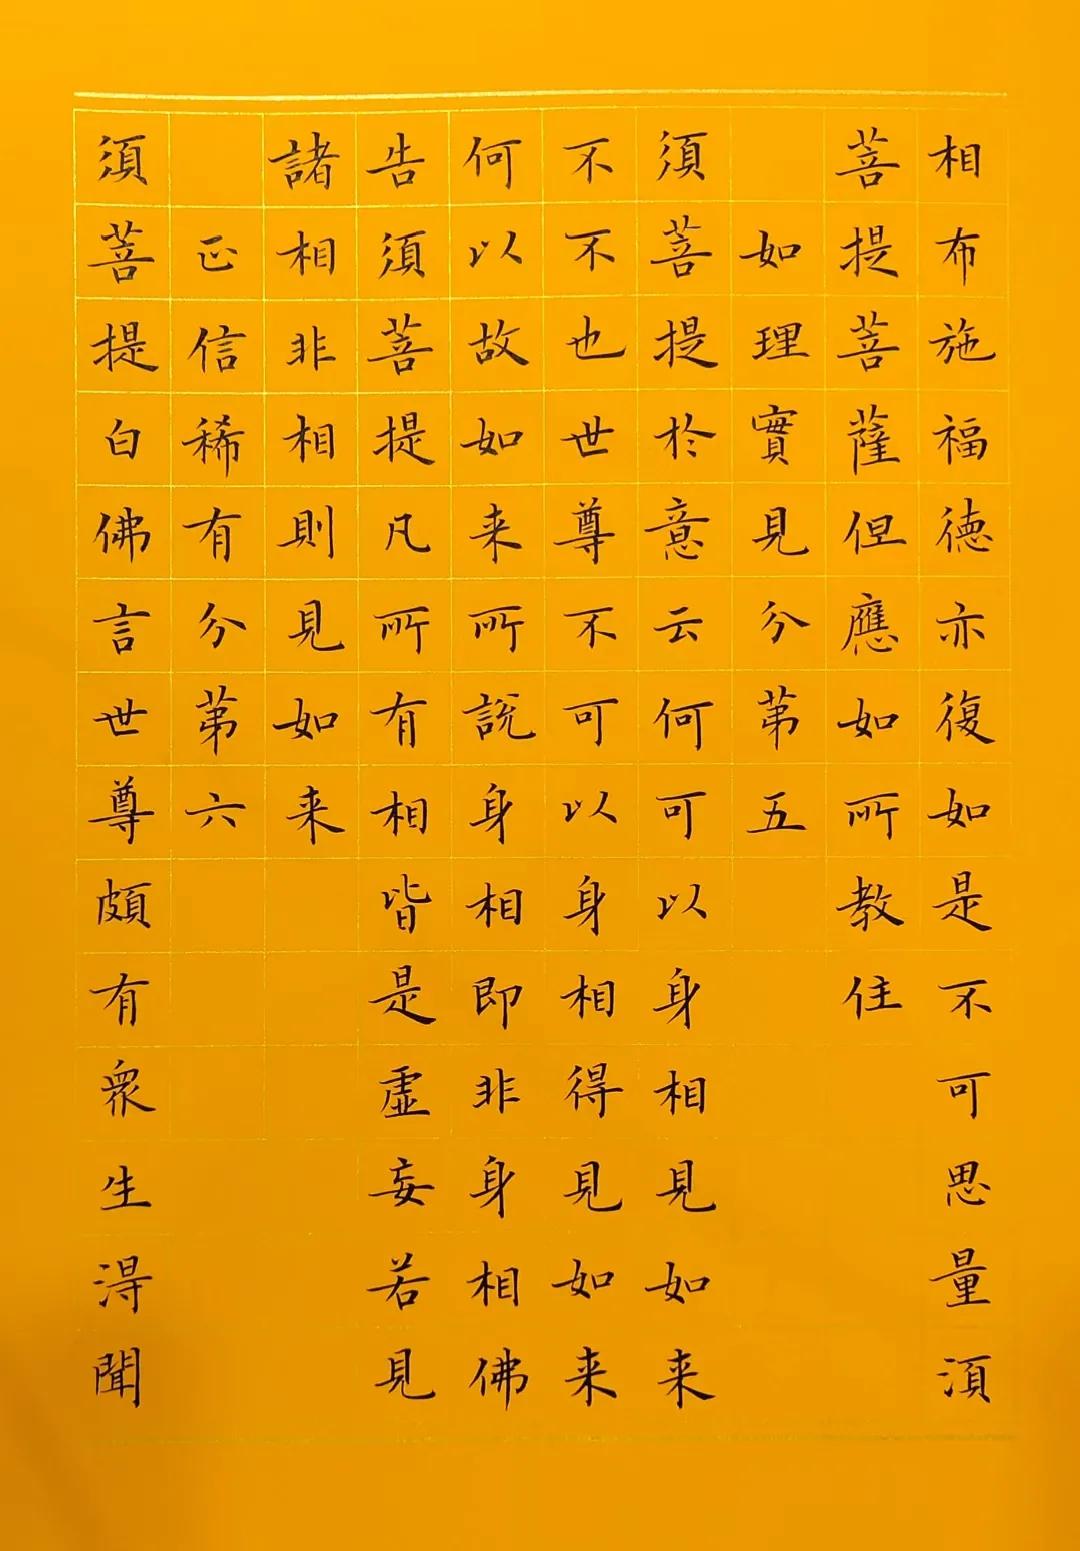 相布施福德亦復如是不可思量須
菩提菩薩但應如所教住
如理實見分第五
須菩提於意云何可以身相見如来
不不也世尊不可以身相得見如来
何以故如来所說身相即非身相佛
告須菩提凡所有相皆是虛妄若見
諸相非相則見如来
正信稀有分第六
須菩提白佛言世尊頗有眾生得聞